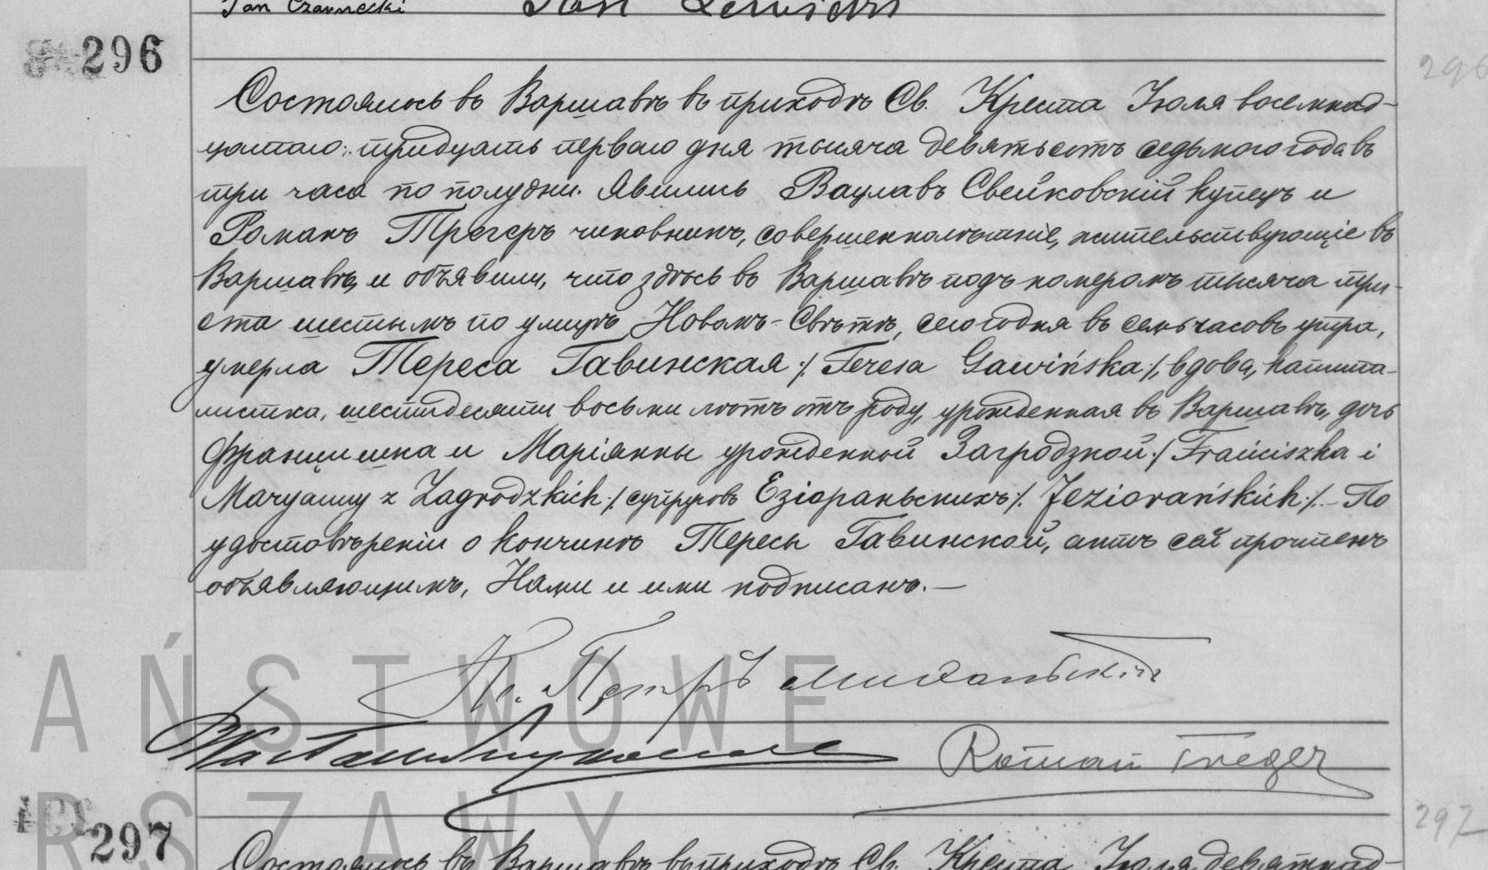 Jan Czarnecki
296
296
Состоялось въ Варшавѣ въ приходѣ Св. Креста Іюля восемнад-
цатаго: тридцать перваго дня тысяча девятьсотъ седьмого года въ
три часа по полудни. Явились Вацлавъ Свейковскій купецъ и
Романъ Трегеръ чиновникъ, совершеннолѣтніе, жительствующіе въ
Варшавѣ, и объявили, что здѣсь въ Варшавѣ подъ номеромъ тысяча три-
ста шестымъ по улицѣ Новомъ-Свѣтѣ, сего годня въ семь часовъ утра,
умерла Тереса Гавинская ./ Teresa Gawińska /, вдова, капита-
листка, шестидесяти восьми лѣтъ отъ роду, урожденная въ Варшавѣ, дочь
Францишка и Маріянны урожденной Загродзкой ./ Franciszka i
Maryanny z Zagrodzkich ./ супруговъ Езіораньскихъ ./. Jeziorańskich ./. – По
удостовѣреніи о кончинѣ Тересы Гавинской, актъ сей прочтенъ
объявляющимъ, Нами и ими подписанъ. —
Кс. Петръ
Roman Treger
AŃSTWOWE
RSZAWY
297
297
Состоялось въ Варшавѣ въ приходѣ Св. Креста Іюля девятнад-